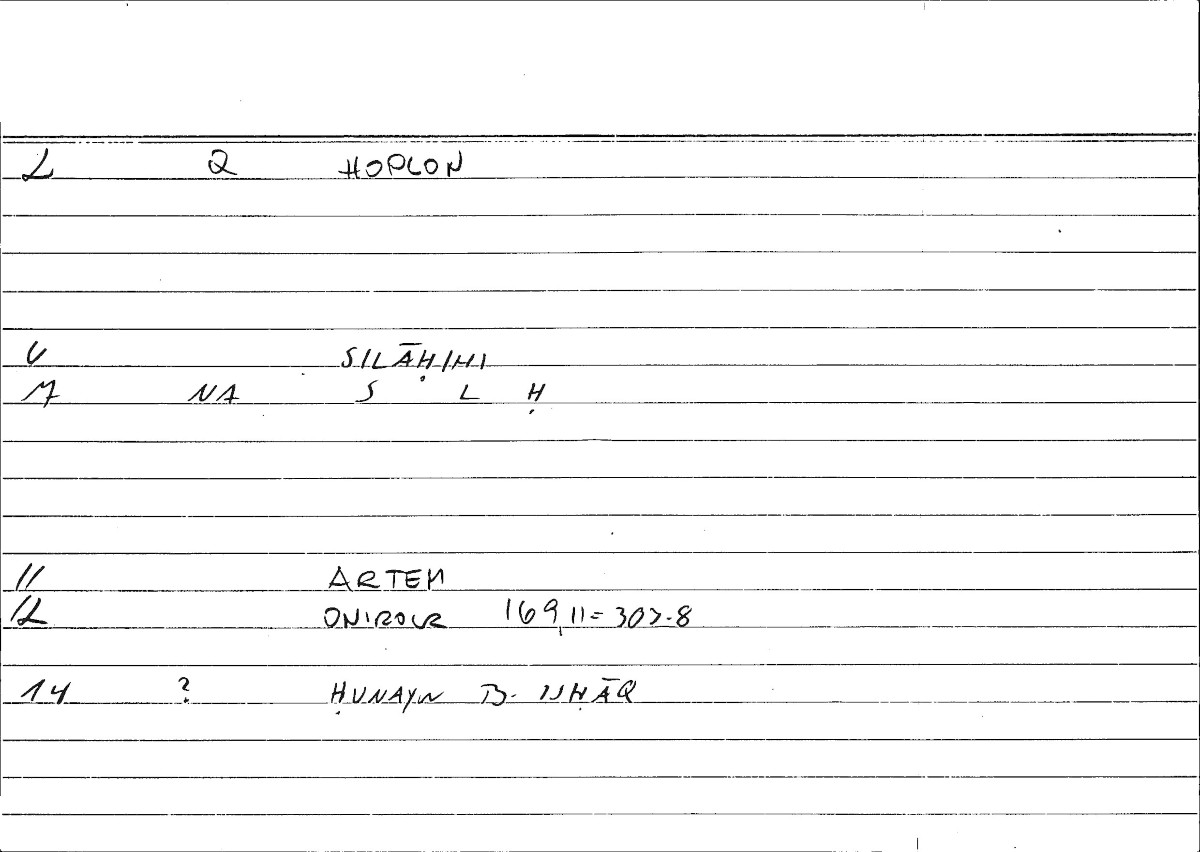 2 2 HOPLON
6 SILĀḤIHI
7 NA S L Ḥ
11 ARTEM
12 ONIROCR 169,11 = 307.8
14 ? ḤUNAYN B. ISḤĀQ